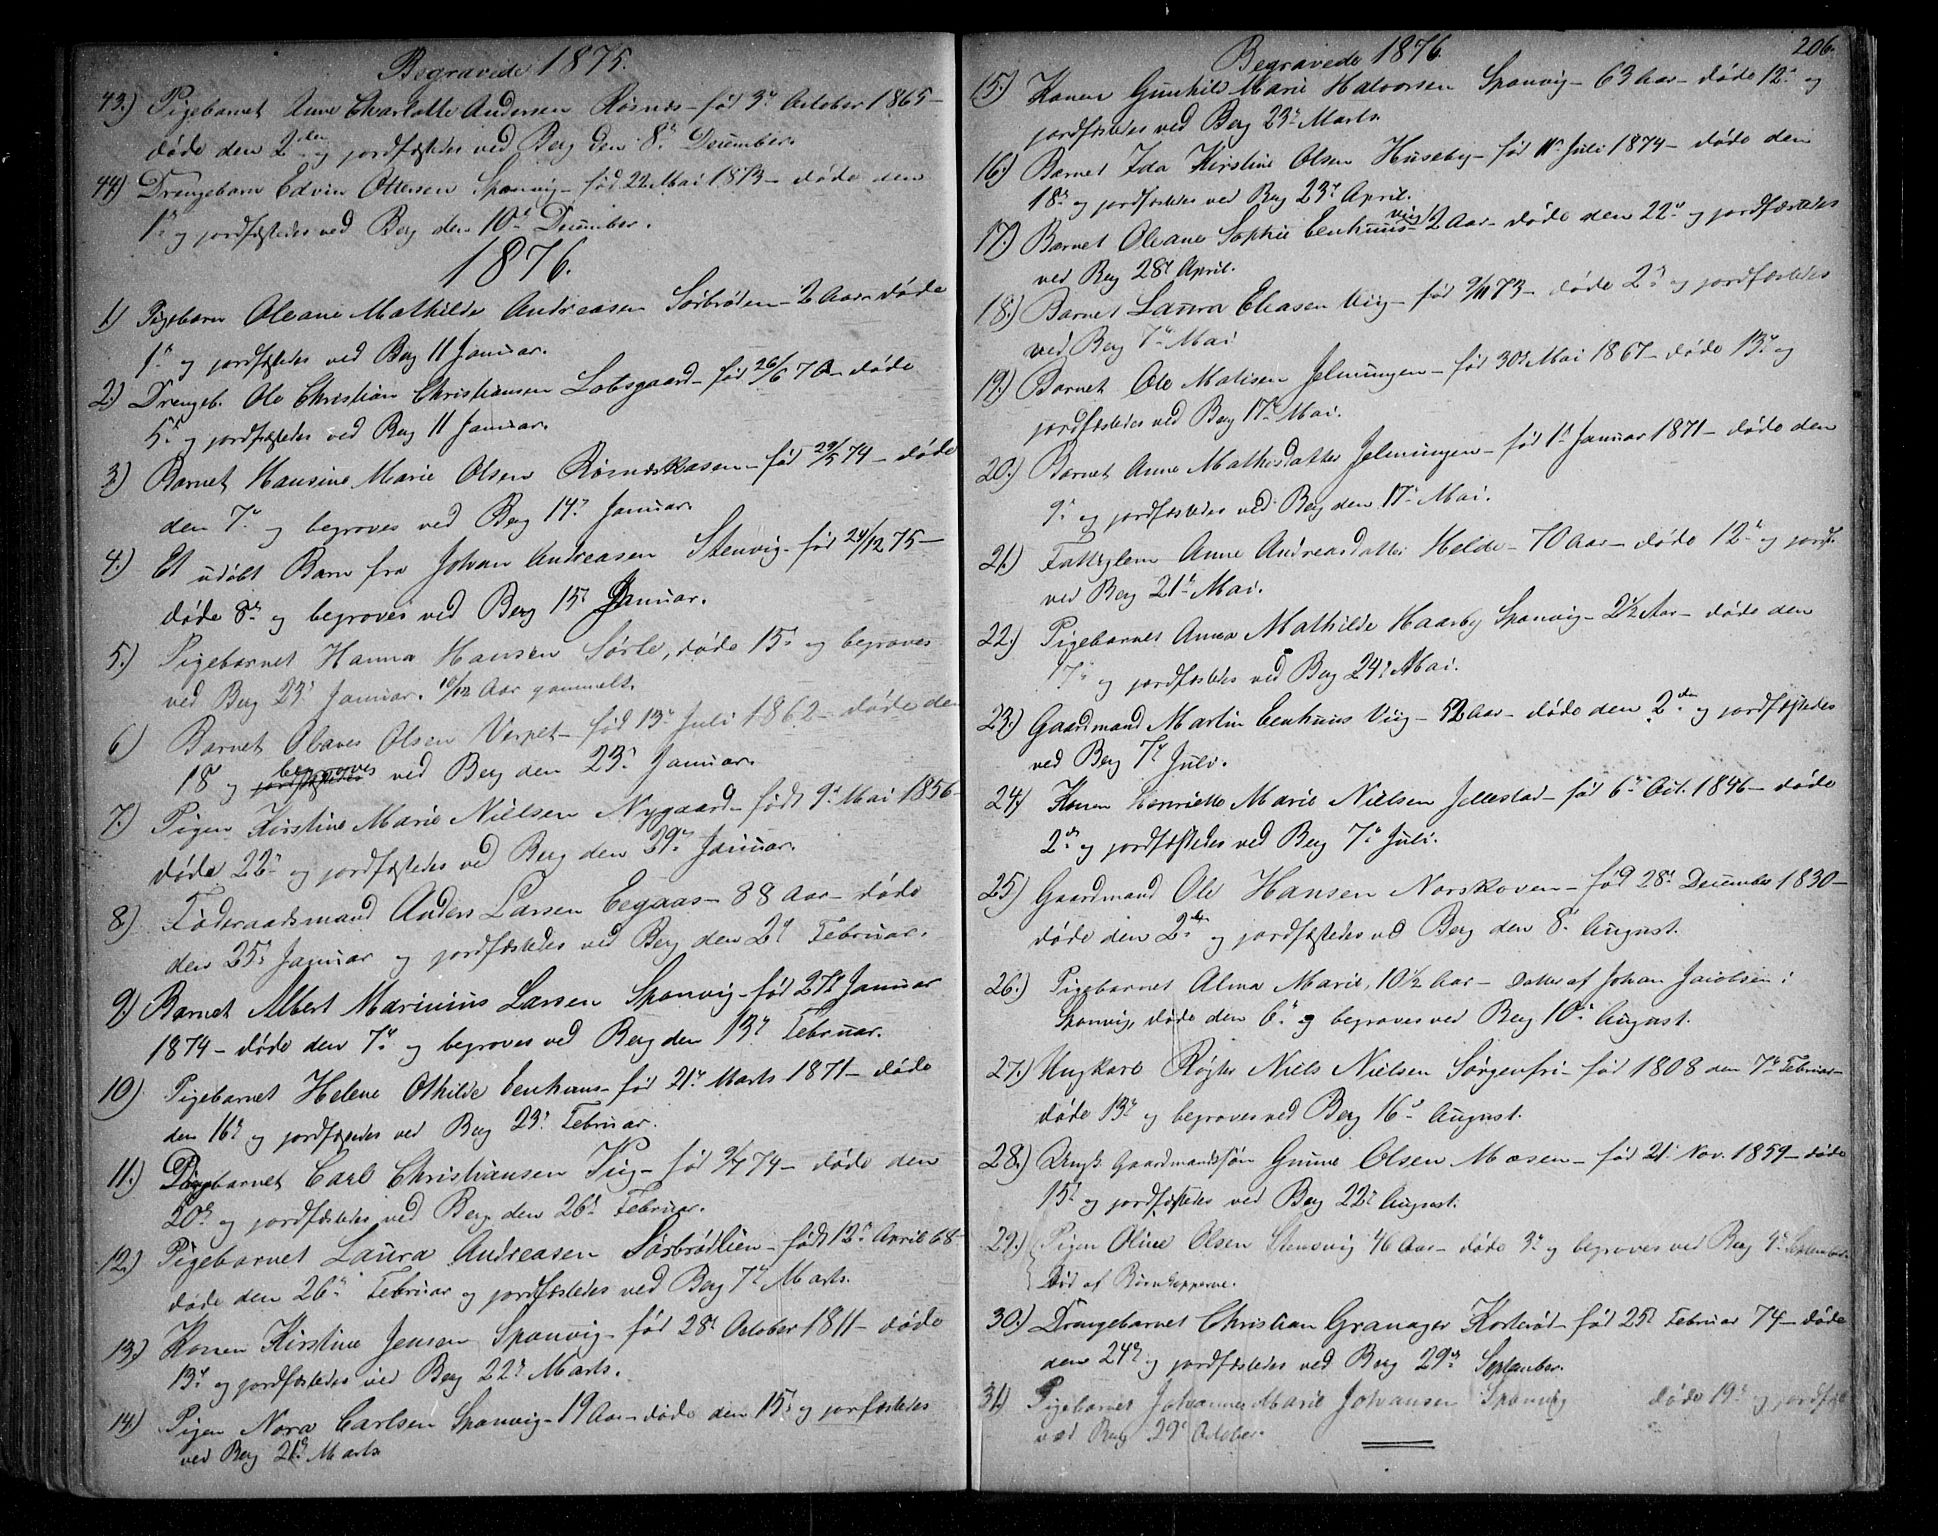 Begravede 1875.
43.) Pigebarnet Anne Charlotte Andersen Rösnæs – fød 3die October 1865 –
døde den 2den og jordfæstedes ved Berg den 8de December.
44.) Drengebarn Edvin Ottersen Sponvig – fød 22 Mai 1873 – døde den
1te og jordfæstedes ved Berg den 10de December.
1876.
1.) Pigebarn Oleane Mathilde Andreasen Sörbröden – 2 Aar – døde
1te og jordfæstedes ved Berg 11 Januar.
2.) Drengeb. Ole Christian Christiansen Labsgaard – fød 26/6 70 – døde
5te og jordfæstedes ved Berg 11 Januar.
3.) Barnet Hansine Marie Olsen Rösnæskasen – fød 29/5 74 – døde
den 7de og begroves ved Berg 14de Januar.
4.) Et udöbt Barn fra Johan Andreasen Stenvig – fød 24/12 75 –
døde 8de og begroves ved Berg 15de Januar.
5.) Pigebarnet Hanna Hansen Sörle, døde 15de og begroves
ved Berg 23de Januar. 10/12 Aar gammelt.
6.) Barnet Olaves Olsen Verpet – fød 13de Juli 1862 – døde den
18de og begroves ved Berg den 23de Januar.
7.) Pigen Kirstine Marie Nielsen Nygaard – født 9de Mai 1856 –
døde 22de og jordfæstedes ved Berg den 29de Januar.
8.) Föderaadsmand Anders Larsen Eegaas – 88 Aar – døde
den 25de Januar og jordfæstedes ved Berg den 2den Februar.
9.) Barnet Albert Marinius Larsen Sponvig – fød 27de Januar
1874 – døde den 7de og begroves ved Berg den 13de Februar.
10.) Pigebarnet Helene Othilde Eenhuus – fød 21de Marts 1871 – døde
den 16de og jordfæstedes ved Berg 23de Februar.
11.) barnet Carl Christiansen Viig – fød 9/7 74 – døde den
20de og jordfæstedes ved Berg den 26de Februar.
12.) Pigebarnet Laura Andreasen Sörbrödlien – født 12te April 68 –
døde den 26de Februar og jordfæstedes ved Berg 7de Marts.
13.) Konen Kirstine Jensen Sponvig – fød 28de October 1811 – døde
13de og jordfæstedes ved Berg 22de Marts.
14.) Pigen Nora Carlsen Sponvig – 19 Aar – døde den 15de og jorfæstedes
ved Berg 21de Marts
Begravede 1876. 206.
15.) Konen Gunhild Marie Halvorsen Sponvig – 63 Aar – døde 12te og
jordfæstedes ved Berg 23de Marts.
16.) Barnet Ida Kirstine Olsen Huseby – fød 11te Juli 1874 – døde den
18de og jordfæstedes ved Berg 23de April.
17.) Barnet Oleane Sophie Eenhuus Viig – 2 Aar – døde den 22de og jordfæstedes
ved Berg 28de April.
18.) Barnet Laura Eliasen Viig – fød 9/11 73 – døde 2den og jordfæstedes
ved Berg 7de Mai.
19.) Barnet Ole Matisen Jelmungen – fød 30de Mai 1867 – døde 13de og
jordfæstedes ved Berg 17de Mai.
20.) Barnet Anne Mathisdatter Jelmungen – fød 1te Januar 1871 – døde den
9de og jordfæstedes ved Berg den 17de Mai.
21.) Fattiglem Anne Andreasdatter Helde – 70 Aar – døde 12te og jordf.
ved Berg 21de Mai.
22.) Pigebarnet Anna Mathilde Haarby Sponvig – 2½ Aar – døde den
17de og jordfæstedes ved Berg 24de Mai.
23.) Gaardmand Martin Eenhuus Viig – 52 Aar – døde den 2den og jordfæstedes
ved Berg 7de Juli.
24.) Konen Henriette Marie Nielsen Jellestad – fød 6te Oct. 1846 – døde
2den og jordfæstedes ved Berg 7de Juli.
25.) Gaardmand Ole Hansen Norskoven – fød 28de December 1830 –
døde den 2den og jordfæstedes ved Berg den 8de August.
26.) Pigebarnet Alma Marie, 10½ Aar – Datter af Johan Jacobsen i
Sponvig, døde den 6te og begroves ved Berg 10de August.
27.) Ungkarl Røgter Niels Nielsen Sörgenfri – fød 1808 den 7de Februar –
døde 13de og begroves ved Berg 16de August.
28.) Ungk. Gaardmandssön Gunne Olsen Mosen – fød 21de Nov. 1859 – døde
15de og jordfæstedes ved Berg 22de August.
29.) Pigen Oline Olsen Stensvig 46 Aar – døde 3de og begroves ved Berg 9de September.
Död af Børnkopperne.
30.) Drengebarnet Christian Granager Korteröd – fød 25de Februar 74 – døde
den 24de og jordfæstedes ved Berg 29de September.
31.) Pigebarnet Johanne Marie Johansen Sponvig døde 19de og jordfæst
ved Berg 29de October.